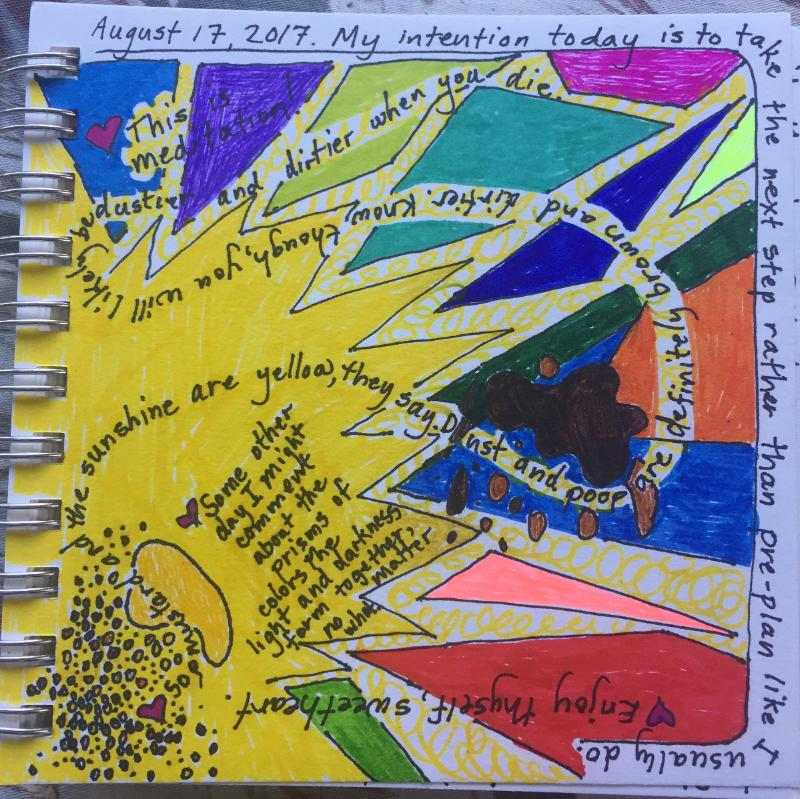 August 17, 2017. My intention today is to take
the next step rather than pre-plan like I
usually do.
This is
meditation!
mustard and the sunshine are yellow, they say. Dust and poop are definitely brown and dirtier. Know, though, you will likely be dustier and dirtier when you die.
Some other
day I might
comment
about the
prisms of
colors the
light and darkness
form together,
no matter
what
Enjoy thyself, sweetheart.